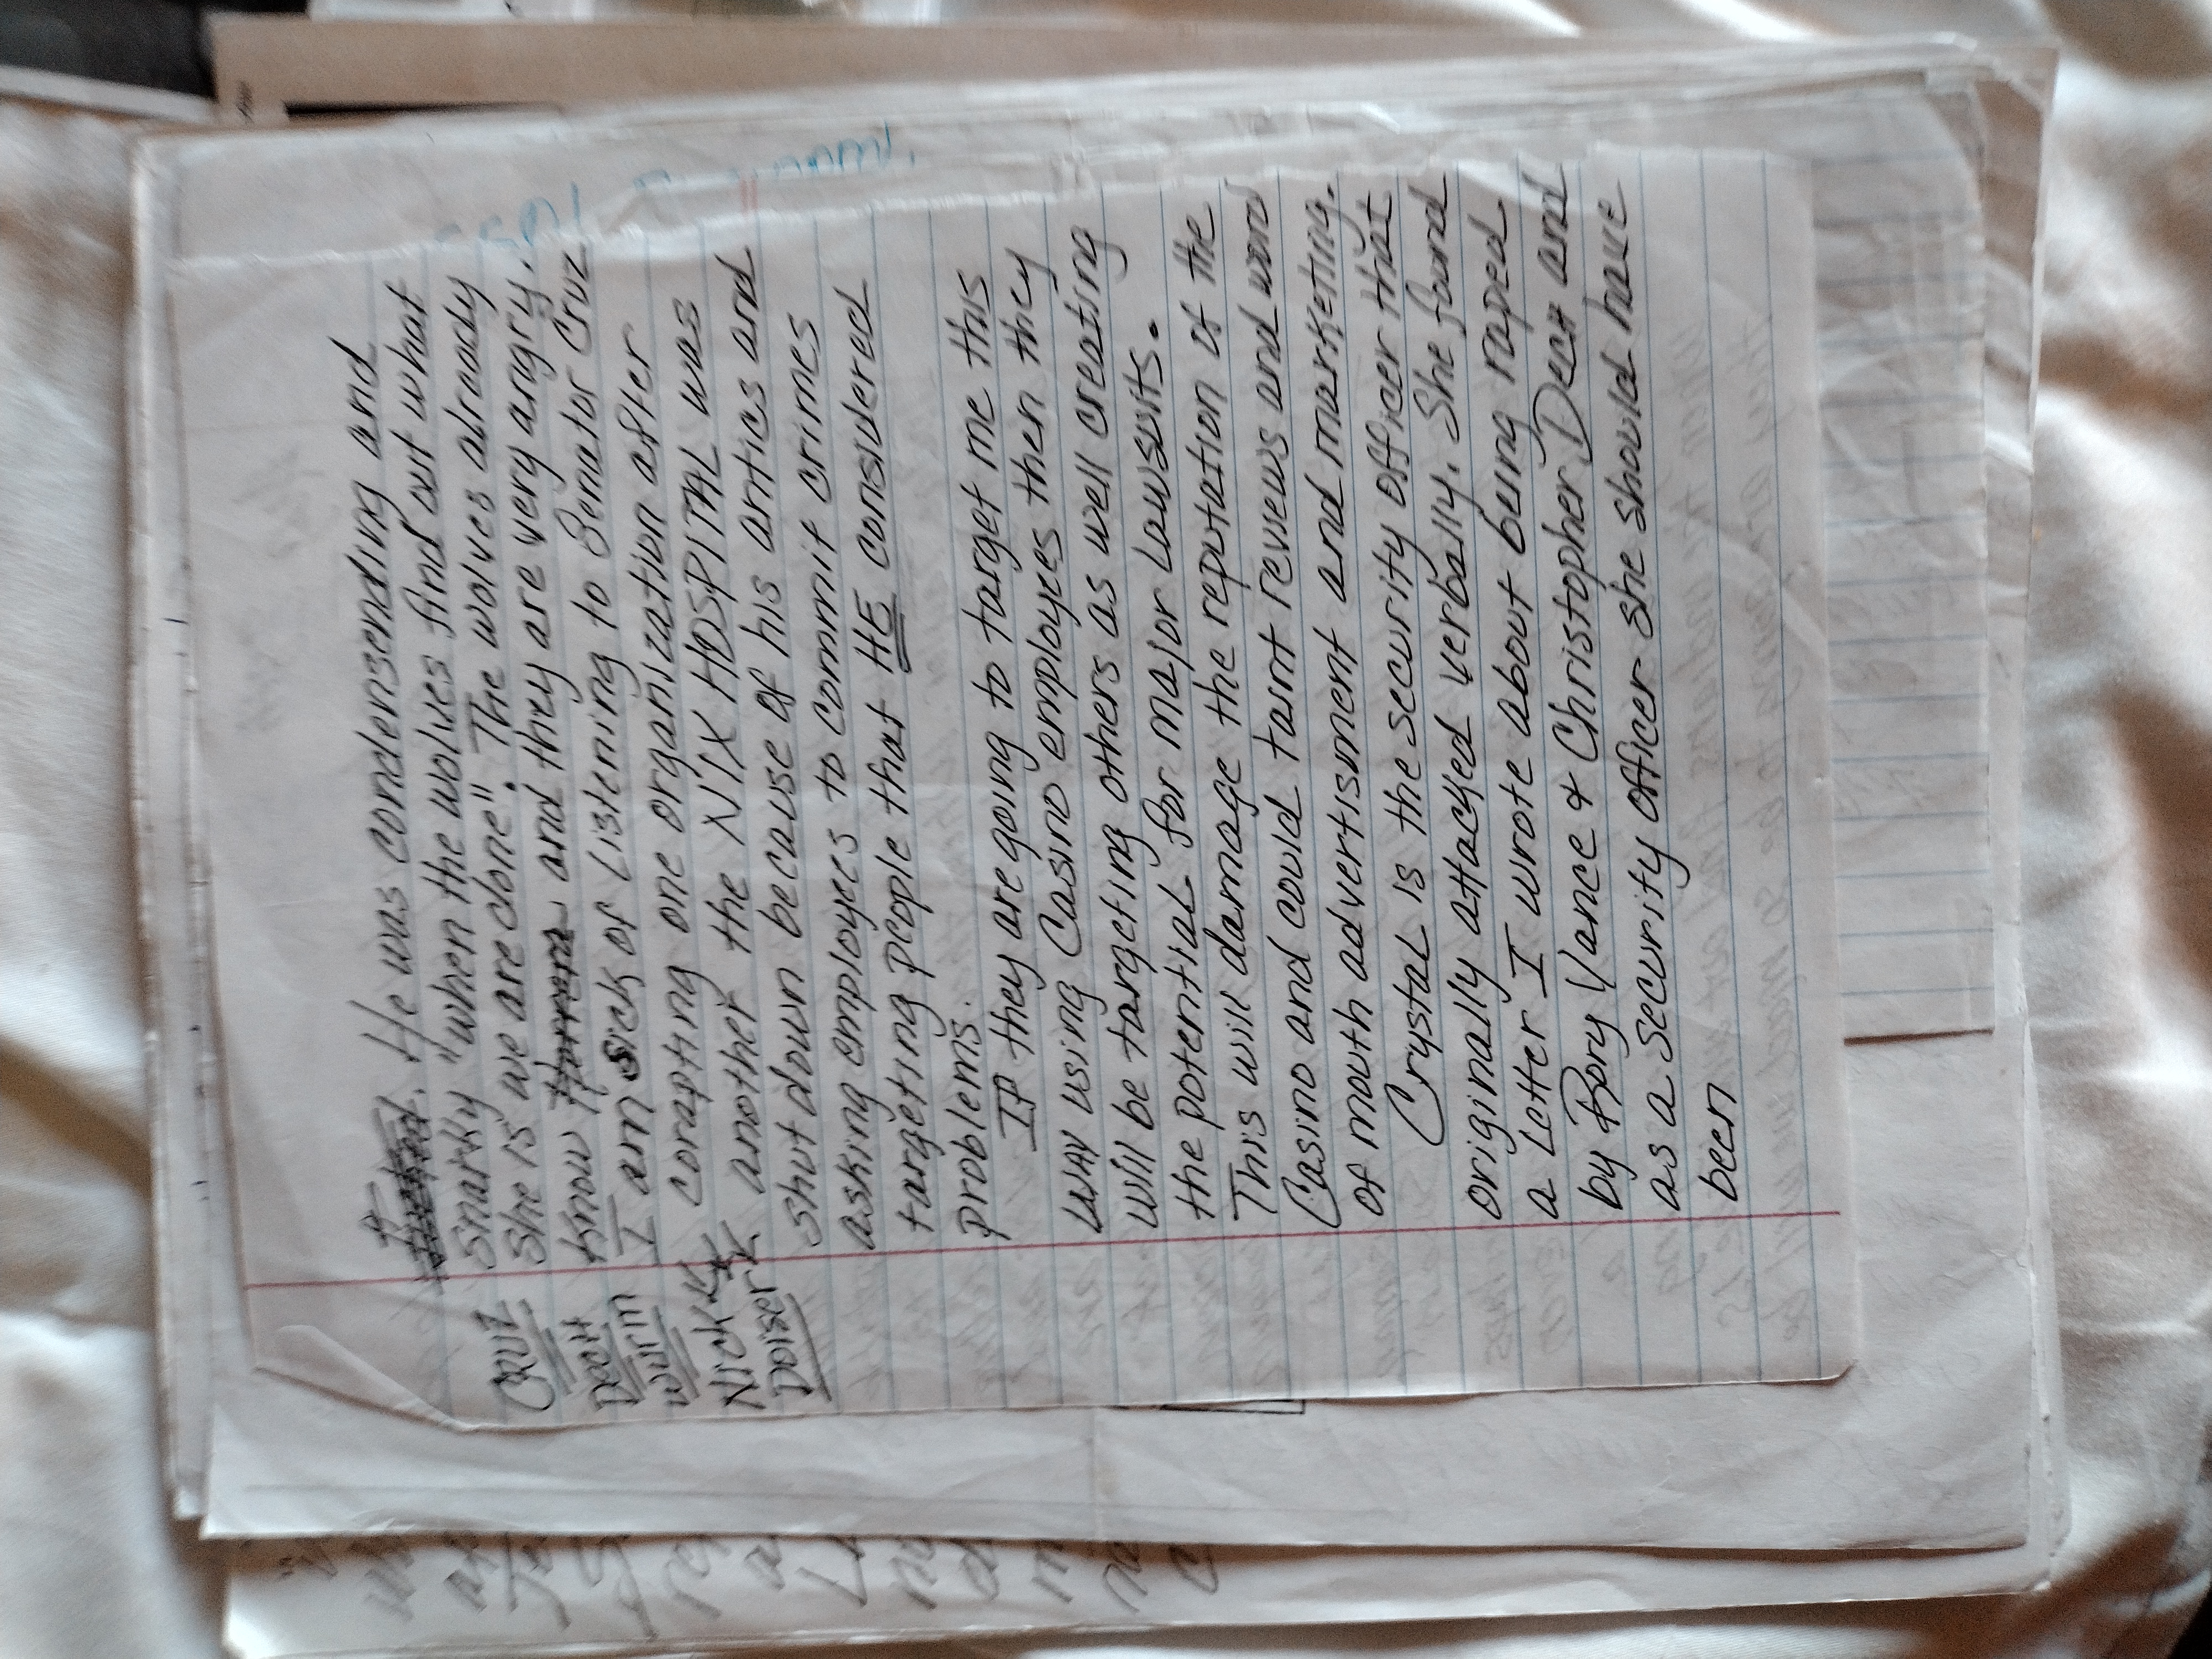 it. He was condensending and
snarky "when the wolves find out what
she is we are done". The wolves already
know and they are very angry.
I am sick of listening to Senator Cruz
corapting one organization after
another the NIX HOSPITAL was
shut down because of his antics and
asking employees to commit crimes
targeting people that HE considered
problems.
IF they are going to target me this
way using Casino employees then they
will be targeting others as well creating
the potential for major lawsuits.
This will damage the reputation of the
Casino and could taint reviews and word
of mouth advertisment and marketing.
Crystal is the security officer that
originally attacked verbally. She found
a letter I wrote about being raped
by Rory Vance & Christopher Dech and
as a security officer she should have
been
CRUZ
DECH
WURM
NICKK
DOISER